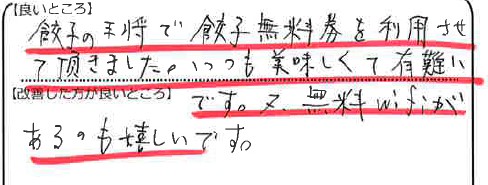 【良いところ】
餃子の王将で餃子無料券を利用させ
て頂きました。いつも美味しくて有難い
【改善した方が良いところ】
です。又、無料wifiが
あるのも嬉しいです。